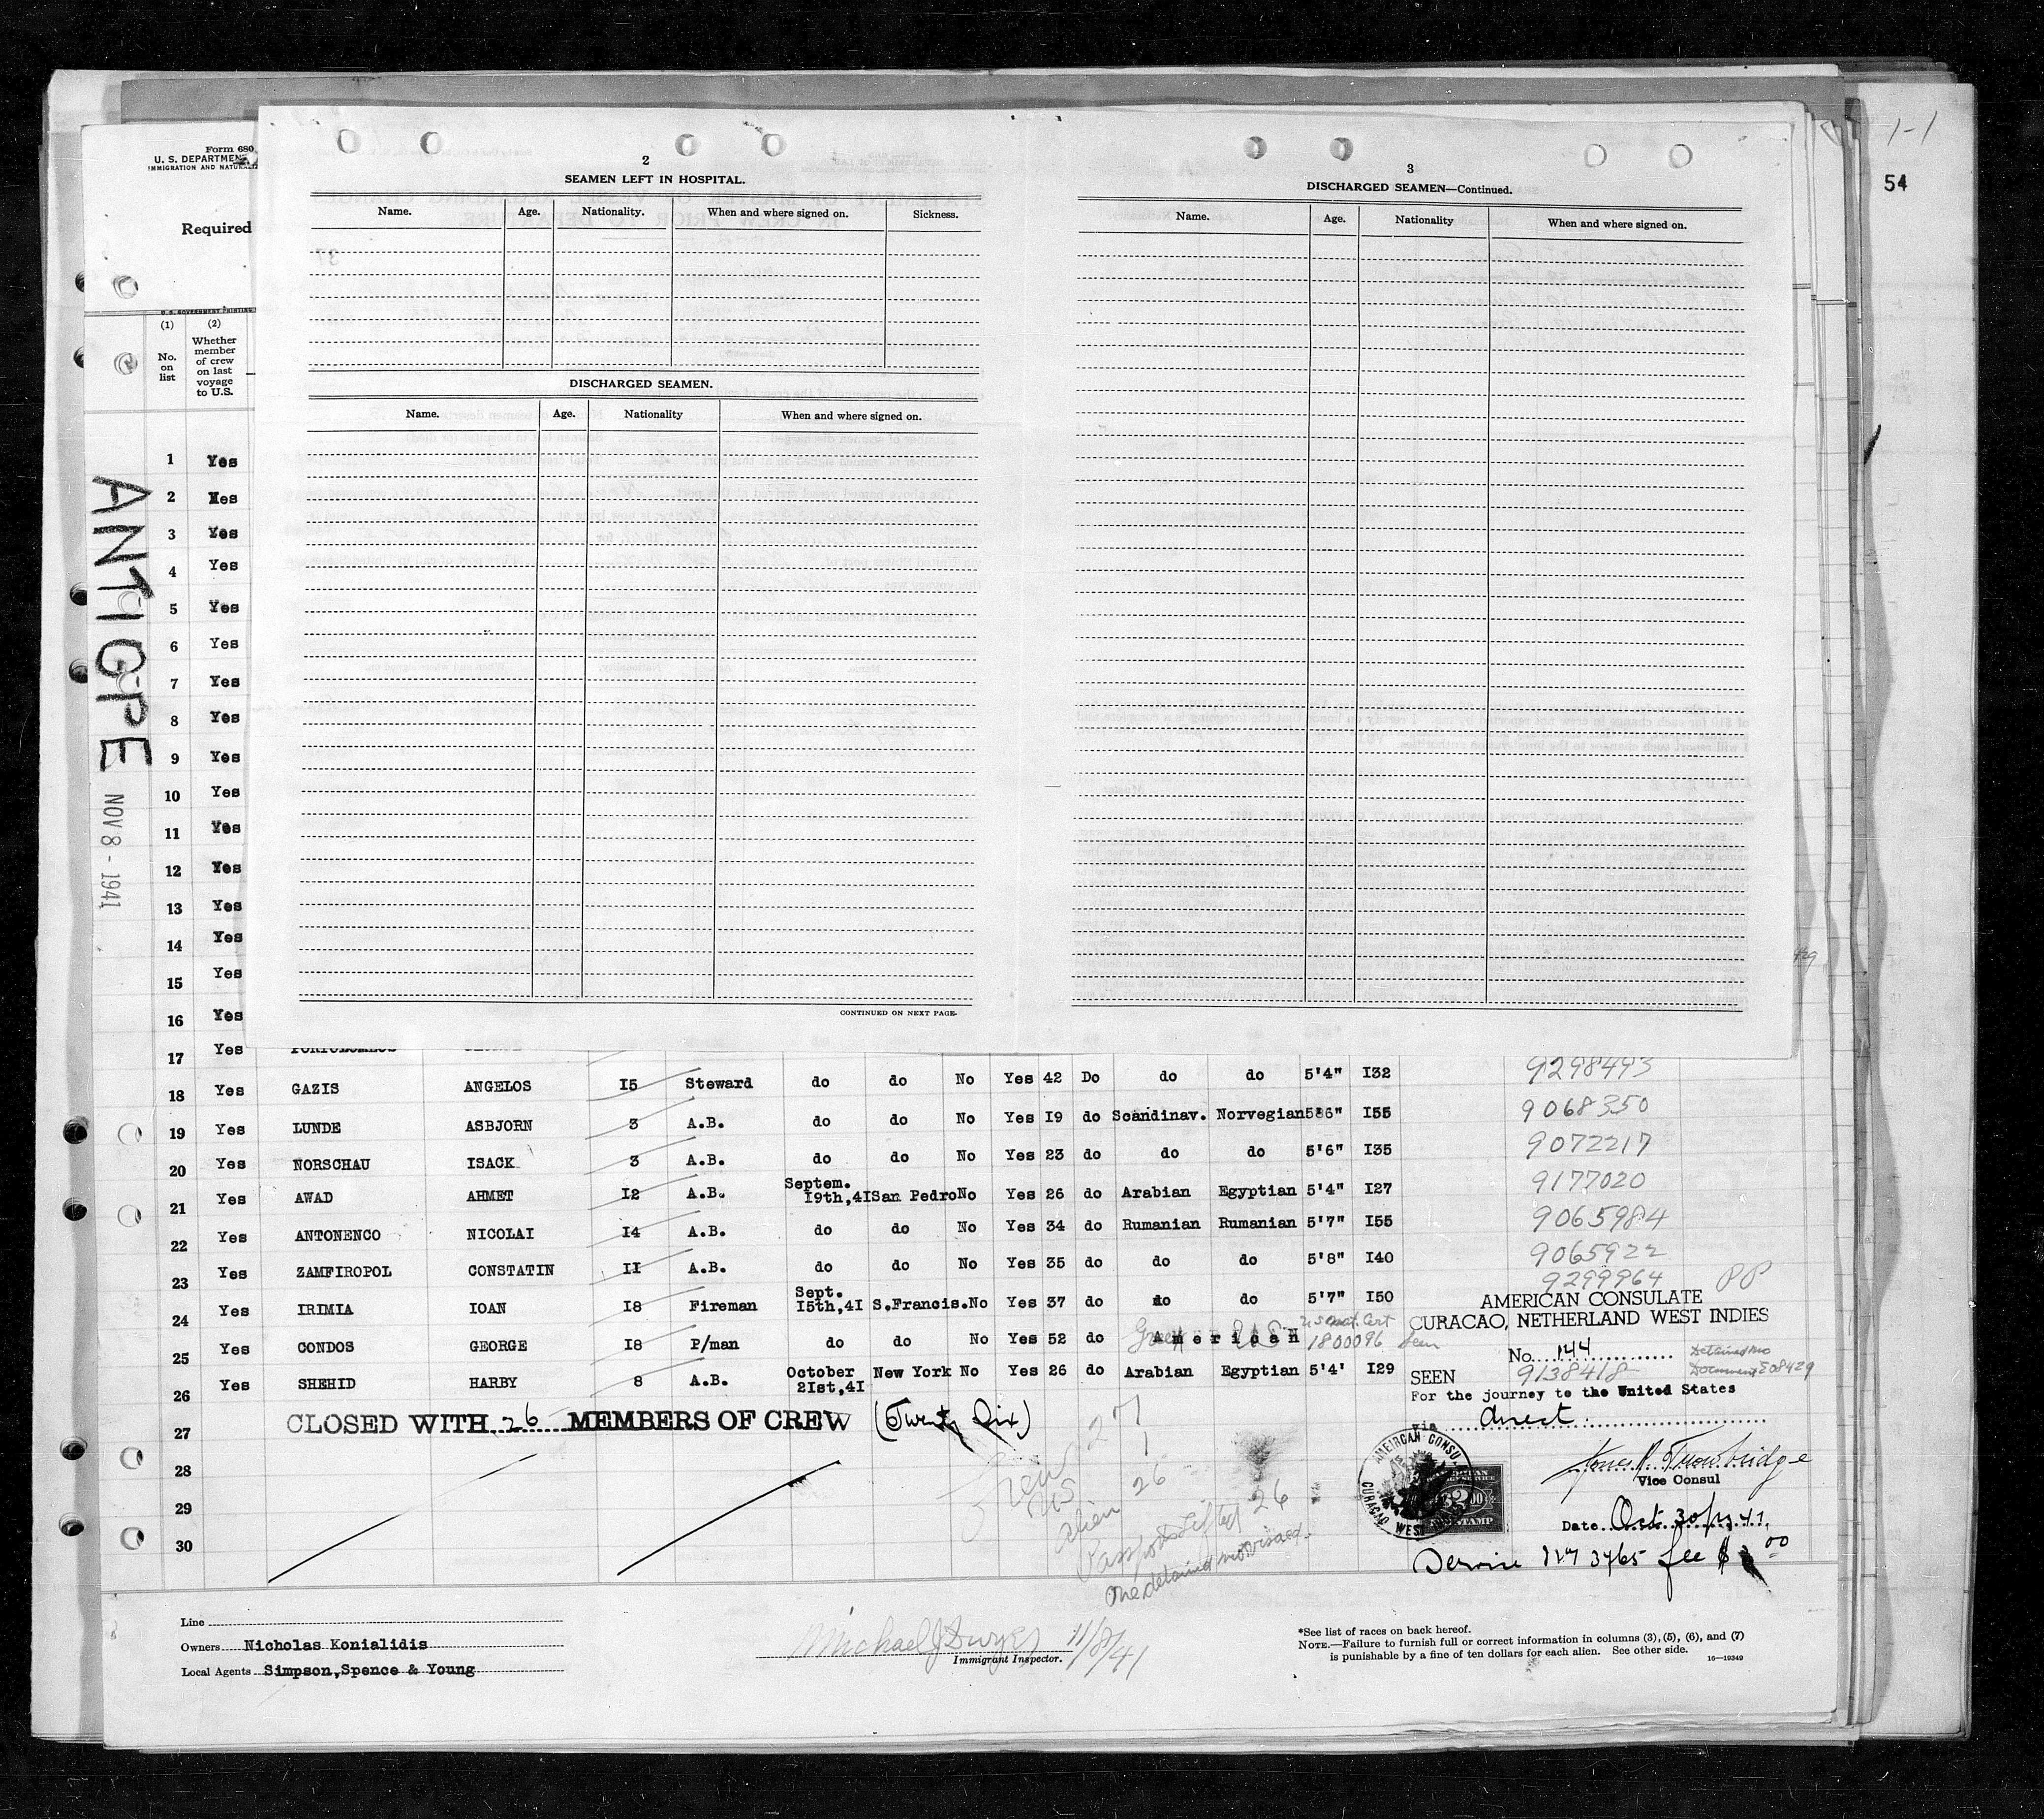 1-1
54
Form 680
U. S. DEPARTMENT
IMMIGRATION AND NATURALIZ
Required
U. S. GOVERNMENT PRINTING
(1) (2)
No. on list
Whether member of crew on last voyage to U.S.
2
SEAMEN LEFT IN HOSPITAL.
Name. Age. Nationality. When and where signed on. Sickness.
DISCHARGED SEAMEN.
Name. Age. Nationality When and where signed on.
CONTINUED ON NEXT PAGE.
3
DISCHARGED SEAMEN—Continued.
Name. Age. Nationality When and where signed on.
ANTIGPE
NOV 8 - 1941
1 Yes
2 Yes
3 Yes
4 Yes
5 Yes
6 Yes
7 Yes
8 Yes
9 Yes
10 Yes
11 Yes
12 Yes
13 Yes
14 Yes
15 Yes
16 Yes
17 Yes
18 Yes GAZIS ANGELOS I5 Steward do do No Yes 42 Do do do 5'4" I32 9298493
19 Yes LUNDE ASBJORN 3 A.B. do do No Yes I9 do Scandinav. Norwegian 5'6" I55 9068350
20 Yes NORSCHAU ISACK 3 A.B. do do No Yes 23 do do do 5'6" I35 9072217
21 Yes AWAD AHMET I2 A.B. Septem. I9th,4I San Pedro No Yes 26 do Arabian Egyptian 5'4" I27 9177020
22 Yes ANTONENCO NICOLAI I4 A.B. do do No Yes 34 do Rumanian Rumanian 5'7" I55 9065984
23 Yes ZAMFIROPOL CONSTATIN II A.B. do do No Yes 35 do do do 5'8" I40 9065922
24 Yes IRIMIA IOAN I8 Fireman Sept. I5th,4I S.Francis. No Yes 37 do do do 5'7" I50 9299964 PP
25 Yes CONDOS GEORGE I8 P/man do do No Yes 52 do American US Nat. Cert 1800096 Seen
26 Yes SHEHID HARBY 8 A.B. October 2Ist,4I New York No Yes 26 do Arabian Egyptian 5'4' I29 9138418
27 CLOSED WITH 26 MEMBERS OF CREW (Twenty Six)
28
29
30
27
Crew
US 1
Alien 26
Passports Lifted 26
One detained not visaed
AMERICAN CONSULATE
CURACAO, NETHERLAND WEST INDIES
No. 144
Detained no
Document E08429
SEEN
For the journey to the United States
via direct
AMERICAN CONSUL
CURACAO WEST
$2.00
STAMP
Trowbridge
Vice Consul
Date Oct. 30/41
Service No 3765 fee $ 00
Line
Owners Nicholas Konialidis
Local Agents Simpson,Spence & Young
Michael J Dwyer 11/8/41
Immigrant Inspector.
*See list of races on back hereof.
NOTE.—Failure to furnish full or correct information in columns (3), (5), (6), and (7)
is punishable by a fine of ten dollars for each alien. See other side.
16—19349